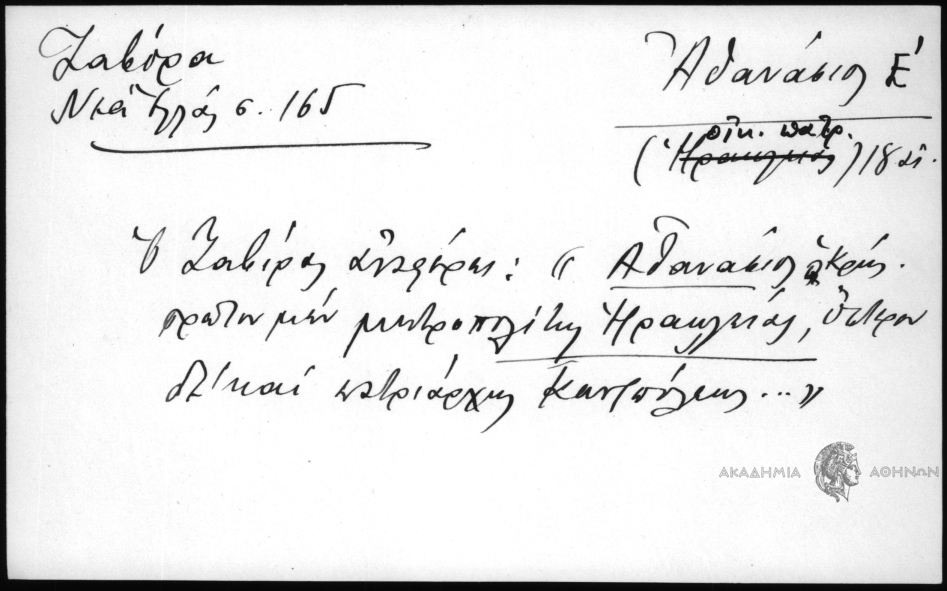 Ζαβίρα
Νέα Ἑλλάς σ. 165
Ἀθανάσιος Ε΄
οἰκ. πατρ.
(Ἡρακλείας) 18 αἰ.
Ὁ Ζαβίρας ἀναφέρει: « Ἀθανάσιος ὁ Κρής.
πρῶτον μὲν μητροπολίτης Ἡρακλείας, ὕστερον
δὲ καὶ πατριάρχης Κωνσ]πόλεως ... »
ΑΚΑΔΗΜΙΑ ΑΘΗΝΩΝ